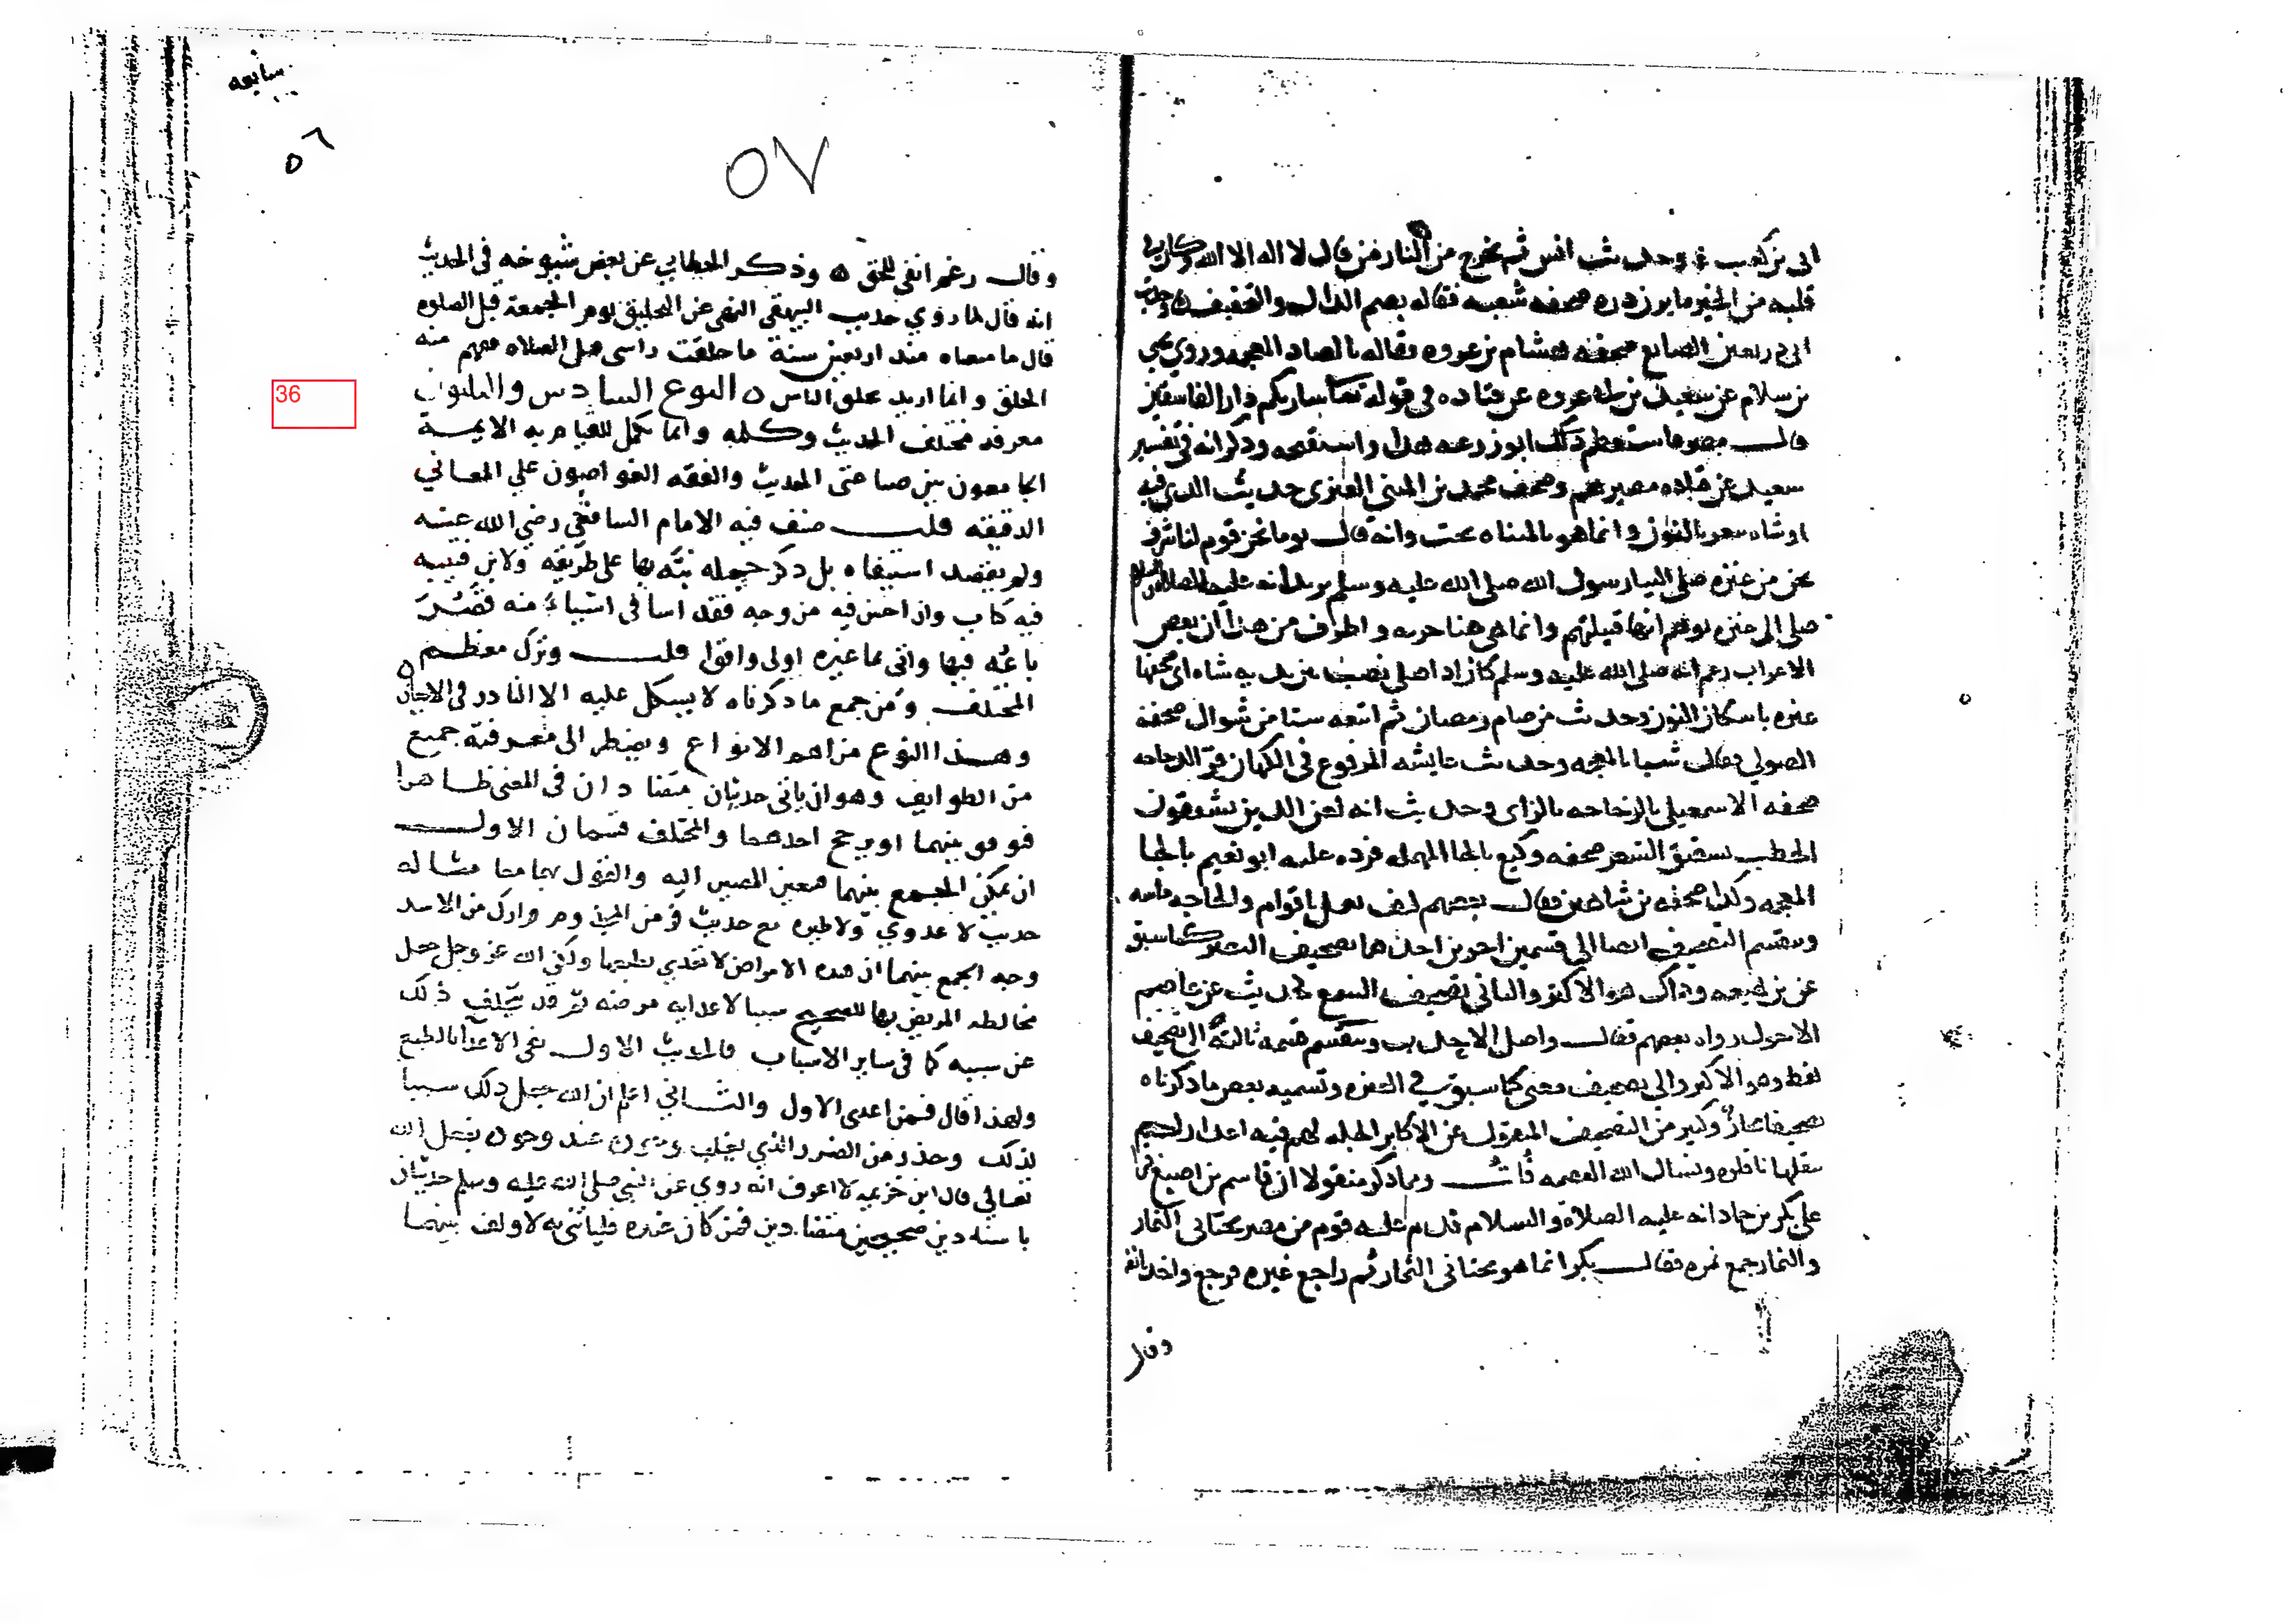 ابي بن كعب وحديث انس ثم يخرج من النار من قال لا اله الا الله وكان في
قلبه من الخير ما يزن ذره صحفه شعبه فقاله بضم الذال والتخفيف وحديث
ابي ذر تعين الصانع صحفه هشام بن عروه فقاله بالضاد المعجمه وروي يحيى
بن سلام عن سعيد بن ابي عروبه عن قتاده في قوله تعالى ساريكم دار الفاسقين
قال مصر واستعظم ذلك ابو زرعه هذا واستقبحه وذكر انه في تفسير
سعيد عن قتاده مصيرهم وصحف محمد بن المثنى العنزي حديث الذي فيه
او شاه تيعر بالنون وانما هو بالمثناه تحت وانه قال يوما نحن قوم لنا شرف
نحن من عنزه صلى الينا رسول الله صلى الله عليه وسلم يريد انه عليه الصلاه والسلام
صلى الى عنزه توهم انها قبيلتهم وانما هي هنا حربه واطرف من هذا ان بعض
الاعراب زعم انه صلى الله عليه وسلم كان اذا صلى نصبت بين يديه شاه اي صحفها
عنزه باسكان النون وحديث من صام رمضان ثم اتبعه ستا من شوال صحفه
الصولي فقال شيا بالمعجمه وحديث عايشه المرفوع في الكهان قر الدجاجه
صحفه الاسمعيلي بالزجاجه بالزاي وحديث انه لعن الذين يشققون
الخطب تشقيق الشعر صحفه وكيع بالحا المهمله فرده عليه ابو نعيم بالخا
المعجمه وكذا صحفه بن شاهين فقال بعضهم كيف نعمل يا قوم والحاجه ماسه
وينقسم التصحيف ايضا الى قسمين اخرين احدهما تصحيف البصر كما سبق
عن بن لهيعه وذاك هو الاكثر والثاني تصحيف السمع كحديث عن عاصم
الاحول رواه بعضهم فقال واصل الاحدب وينقسم قسمه ثالثه الى تصحيف
لفظ وهو الاكثر والى تصحيف معنى كما سبق في العنزه وتسميه بعض ما ذكرناه
تصحيفا مجاز وكثير من التصحيف المنقول عن الاكابر الجله لهم فيه اعذار لم
ينقلها ناقلوه ونسال الله العصمه قلت ومما ذكر منقولا ان قاسم بن اصبغ قرا
على بكر بن حماد انه عليه الصلاة والسلام قدم عليه قوم من مضر مجتابي النمار
والنمار جمع نمره فقال بكر انما هو مجتابي الثمار ثم راجع غيره فرجع واخذ بانفه
وقال
سابعه
٥٦
٥٧
وقال رغم انفي للحق ٥ وذكر الخطابي عن بعض شيوخه في الحديث
انه قال لما روي حديث النهي عن التحليق يوم الجمعة قبل الصلوه
قال ما معناه منذ اربعين سنة ما حلقت راسي قبل الصلاه ففهم منه
الحلق وانما اريد حلق الناس ٥ النوع السادس والثلثون
معرفه مختلف الحديث وكلمه وانما يكمل للقيام به الايمة
الجامعون بين صناعتي الحديث والفقه الغواصون علي المعاني
الدقيقه قلت صنف فيه الامام الشافعي رضي الله عنه
ولم يقصد استيفاه بل ذكر جمله ينبه بها على طريقه ولابن قتيبه
فيه كتاب وان احسن فيه من وجه فقد اسا في اشياء منه قصر
باعه فيها واتى بما غيره اولى واقوا قلت وترك معظم
المختلف ومن جمع ما ذكرناه لا يشكل عليه الا النادر في الاحيان
وهذا النوع من اهم الانواع ويضطر الى معرفته جميع
من الطوايف وهو ان ياتي حديثان متضادان في المعنى ظاهرا
فيوفق بينهما او يرجح احدهما والمختلف قسمان الاول
ان يمكن الجمع بينهما فيتعين المصير اليه والقول بهما معا مثاله
حديث لا عدوي ولا طيره مع حديث فر من المجذوم فرارك من الاسد
وجه الجمع بينهما ان هذه الامراض لا تعدي بطبعها ولكن الله عز وجل جعل
مخالطه المريض بها للصحيح سببا لاعدايه مرضه ثم قد يتخلف ذلك
عن سببه كما في ساير الاسباب فالحديث الاول نفي الاعدا بالطبع
ولهذا قال فمن اعدى الاول والثاني اعلم ان الله جعل ذلك سببا
لذلك وحذر من الضرر الذي يغلب وجوده عند وجوده بفعل الله
تعالي قال ابن خزيمه لا اعرف انه روي عن النبي صلى الله عليه وسلم حديثان
باسنادين صحيحين متضادين فمن كان عنده فلياتني به لاولف بينهما
36